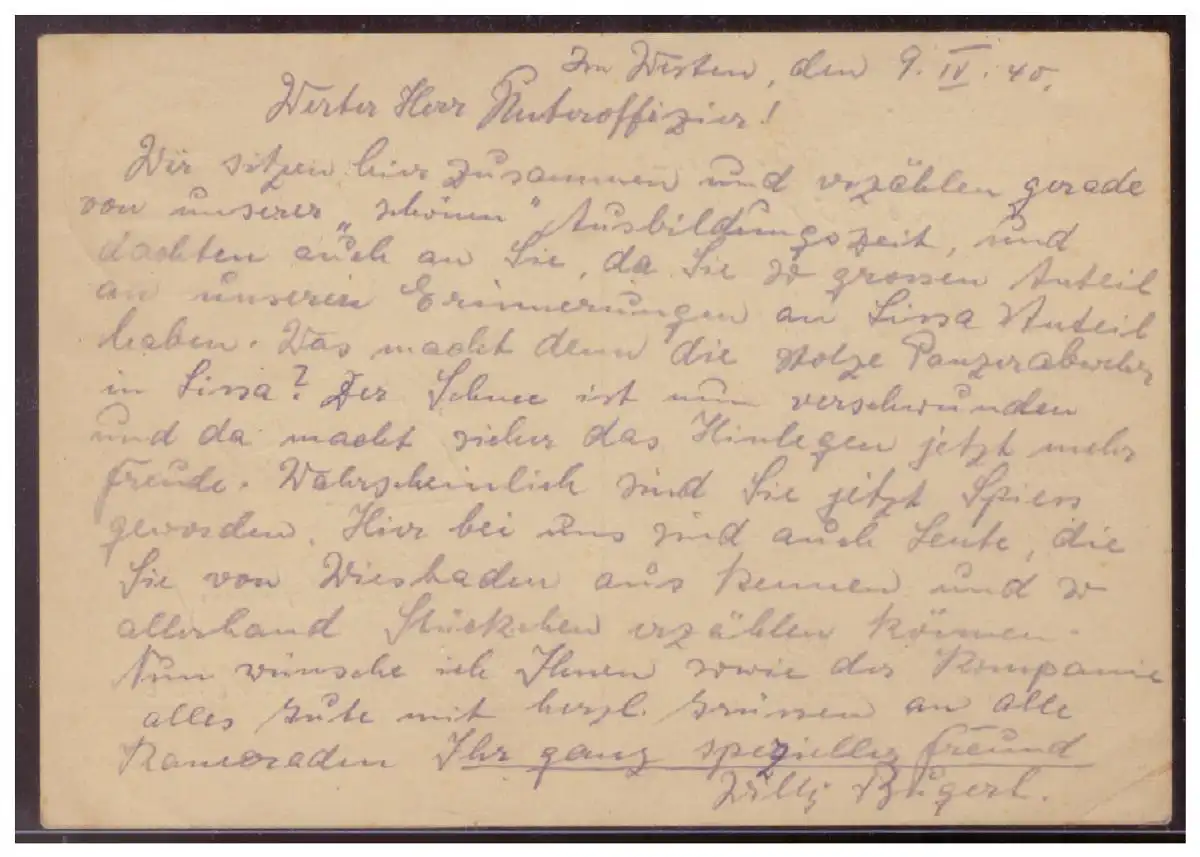 Im Westen, den 9. IV. 40.
Werter Herr Unteroffizier!
Wir sitzen hier zusammen und erzählen gerade
von unserer „schönen" Ausbildungszeit, und
dachten auch an Sie, da Sie so grossen Anteil
an unseren Erinnerungen an Lissa Anteil
haben. Was macht denn die stolze Panzerabwehr
in Lissa? Der Schnee ist nun verschwunden
und da macht sicher das Hinlegen jetzt mehr
Freude. Wahrscheinlich sind Sie jetzt Spiess
geworden. Hier bei uns sind auch Leute, die
Sie von Wiesbaden aus kennen und so
allerhand Stückchen erzählen können.
Nun wünsche ich Ihnen sowie der Kompanie
alles Gute mit herzl. Grüssen an alle
Kameraden Ihr ganz spezieller Freund
Willy